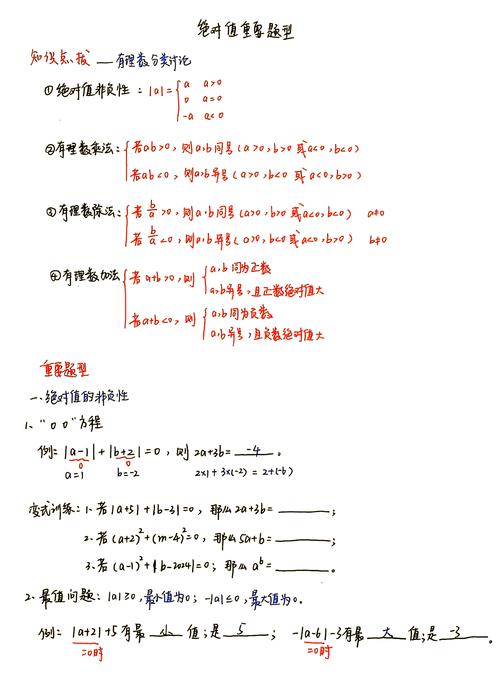 绝对值重要题型
知识点拨 — 有理数分类讨论
①绝对值非负性：|a|= { a a>0
0 a=0
-a a<0
②有理数乘法： { 若ab>0，则a、b同号（a>0,b>0 或a<0,b<0）
若ab<0，则a、b异号（a>0,b<0 或a<0,b>0）
③有理数除法： { 若 b/a >0，则a、b同号（a>0,b>0 或a<0,b<0） a≠0
若 b/a <0，则a、b异号（a>0,b<0 或a<0,b>0） b≠0
④有理数加法 { 若a+b>0，则 { a、b同为正数
a、b异号，且正数绝对值大
若a+b<0，则 { a、b同为负数
a、b异号，且负数绝对值大
重要题型
一、绝对值的非负性
1、“0 0”方程
例：|a-1|+|b+2|=0，则 2a+3b= -4 。
0 0
a=1 b=-2 2×1+3×(-2)=2+(-6)
变式训练：1、若|a+5|+|b-3|=0，那么2a+3b=______；
2、若(a+2)²+(m-4)²=0，那么5a+b=______；
3、若(a-1)²+|b-2024|=0；那么a^b=______。
2、最值问题：|a|≥0,最小值为0；-|a|≤0,最大值为0。
例：|a+2|+5有最 小 值；是 5 ； -|a-6|-3有最 大 值；是 -3 。
=0时 =0时